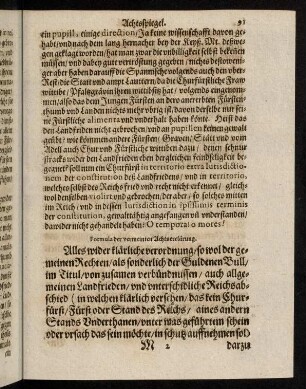 Achtsspiegel. 91
ein pupill, einige direction/ Ja keine wissenschafft davon ge-
habt/ vnd nach dem lang hernacher bey der Keyß. Mt. deßwe-
gen geklagt worden/ hat man zwar die vnbilligkeit selbst bekennen
müssen/ vnd dabey gute vertröstung gegeben/ nichts destoweni-
ger aber haben darauff die Spannische volgends auch den vber
Rest/ die Statt vnd ampt Lautern/ da die Churfürstliche Fraw
wittibe/ Pfaltzgrävin ihren wittibsitz hat/ volgends eingenom-
men/ also das dem Jungen Fürsten an dero anererbten Fürsten-
thumb vnd Landen nichts mehr vbrig ist/ davon derselbe nur sei-
ne Fürstliche alimenta vnd vnderhalt haben könte. Heist das
den Landfrieden nicht gebrochen/ vnd an pupillen keinen gewalt
geübt/ wie kommen andere Fürsten/ Graven/ Stätt vnd vom
Adell auch Chur vnd Fürstliche wittiben dazu/ denen schnur
stracks wider den Landfrieden eben dergleichen feindseligkeit be-
gegnet/ soll man den Churfürsten in territorio extra Iurisdictio-
nem der constitution deß Landfriedens/ vnd in territorio,
welches selbst des Reichs fried vnd recht nicht erkennet/ gleich-
wol denselben violirt vnd gebrochen/ da er also solches mitten
im Reich vnd in dessen Iurisdiction in ipsissimis terminis
der constitution, gewaltthätig angefangen vn̄ vnderstanden/
darwider nicht gehandelt haben? O tempora ô mores!
Formula der vermeinten Achtserclärung.
Alles wider klärliche verordnung/ so wol der ge-
meinen Rechten/ als sonderlich der Guldenen Bull/
im Titul/ von zusamen verbündnussen/ auch allge-
meinen Landfrieden/ vnd vnterschidtliche Reichsab-
schied (in welchen klärlich vorsehen/ das kein Chur-
fürst/ Fürst oder Stand des Reichs/ eines andern
Stands Vnderthanen/ vnter was geführtem schein
oder vrsach das sein möchte/ in schutz auffnehmen sol
M 2 darzu